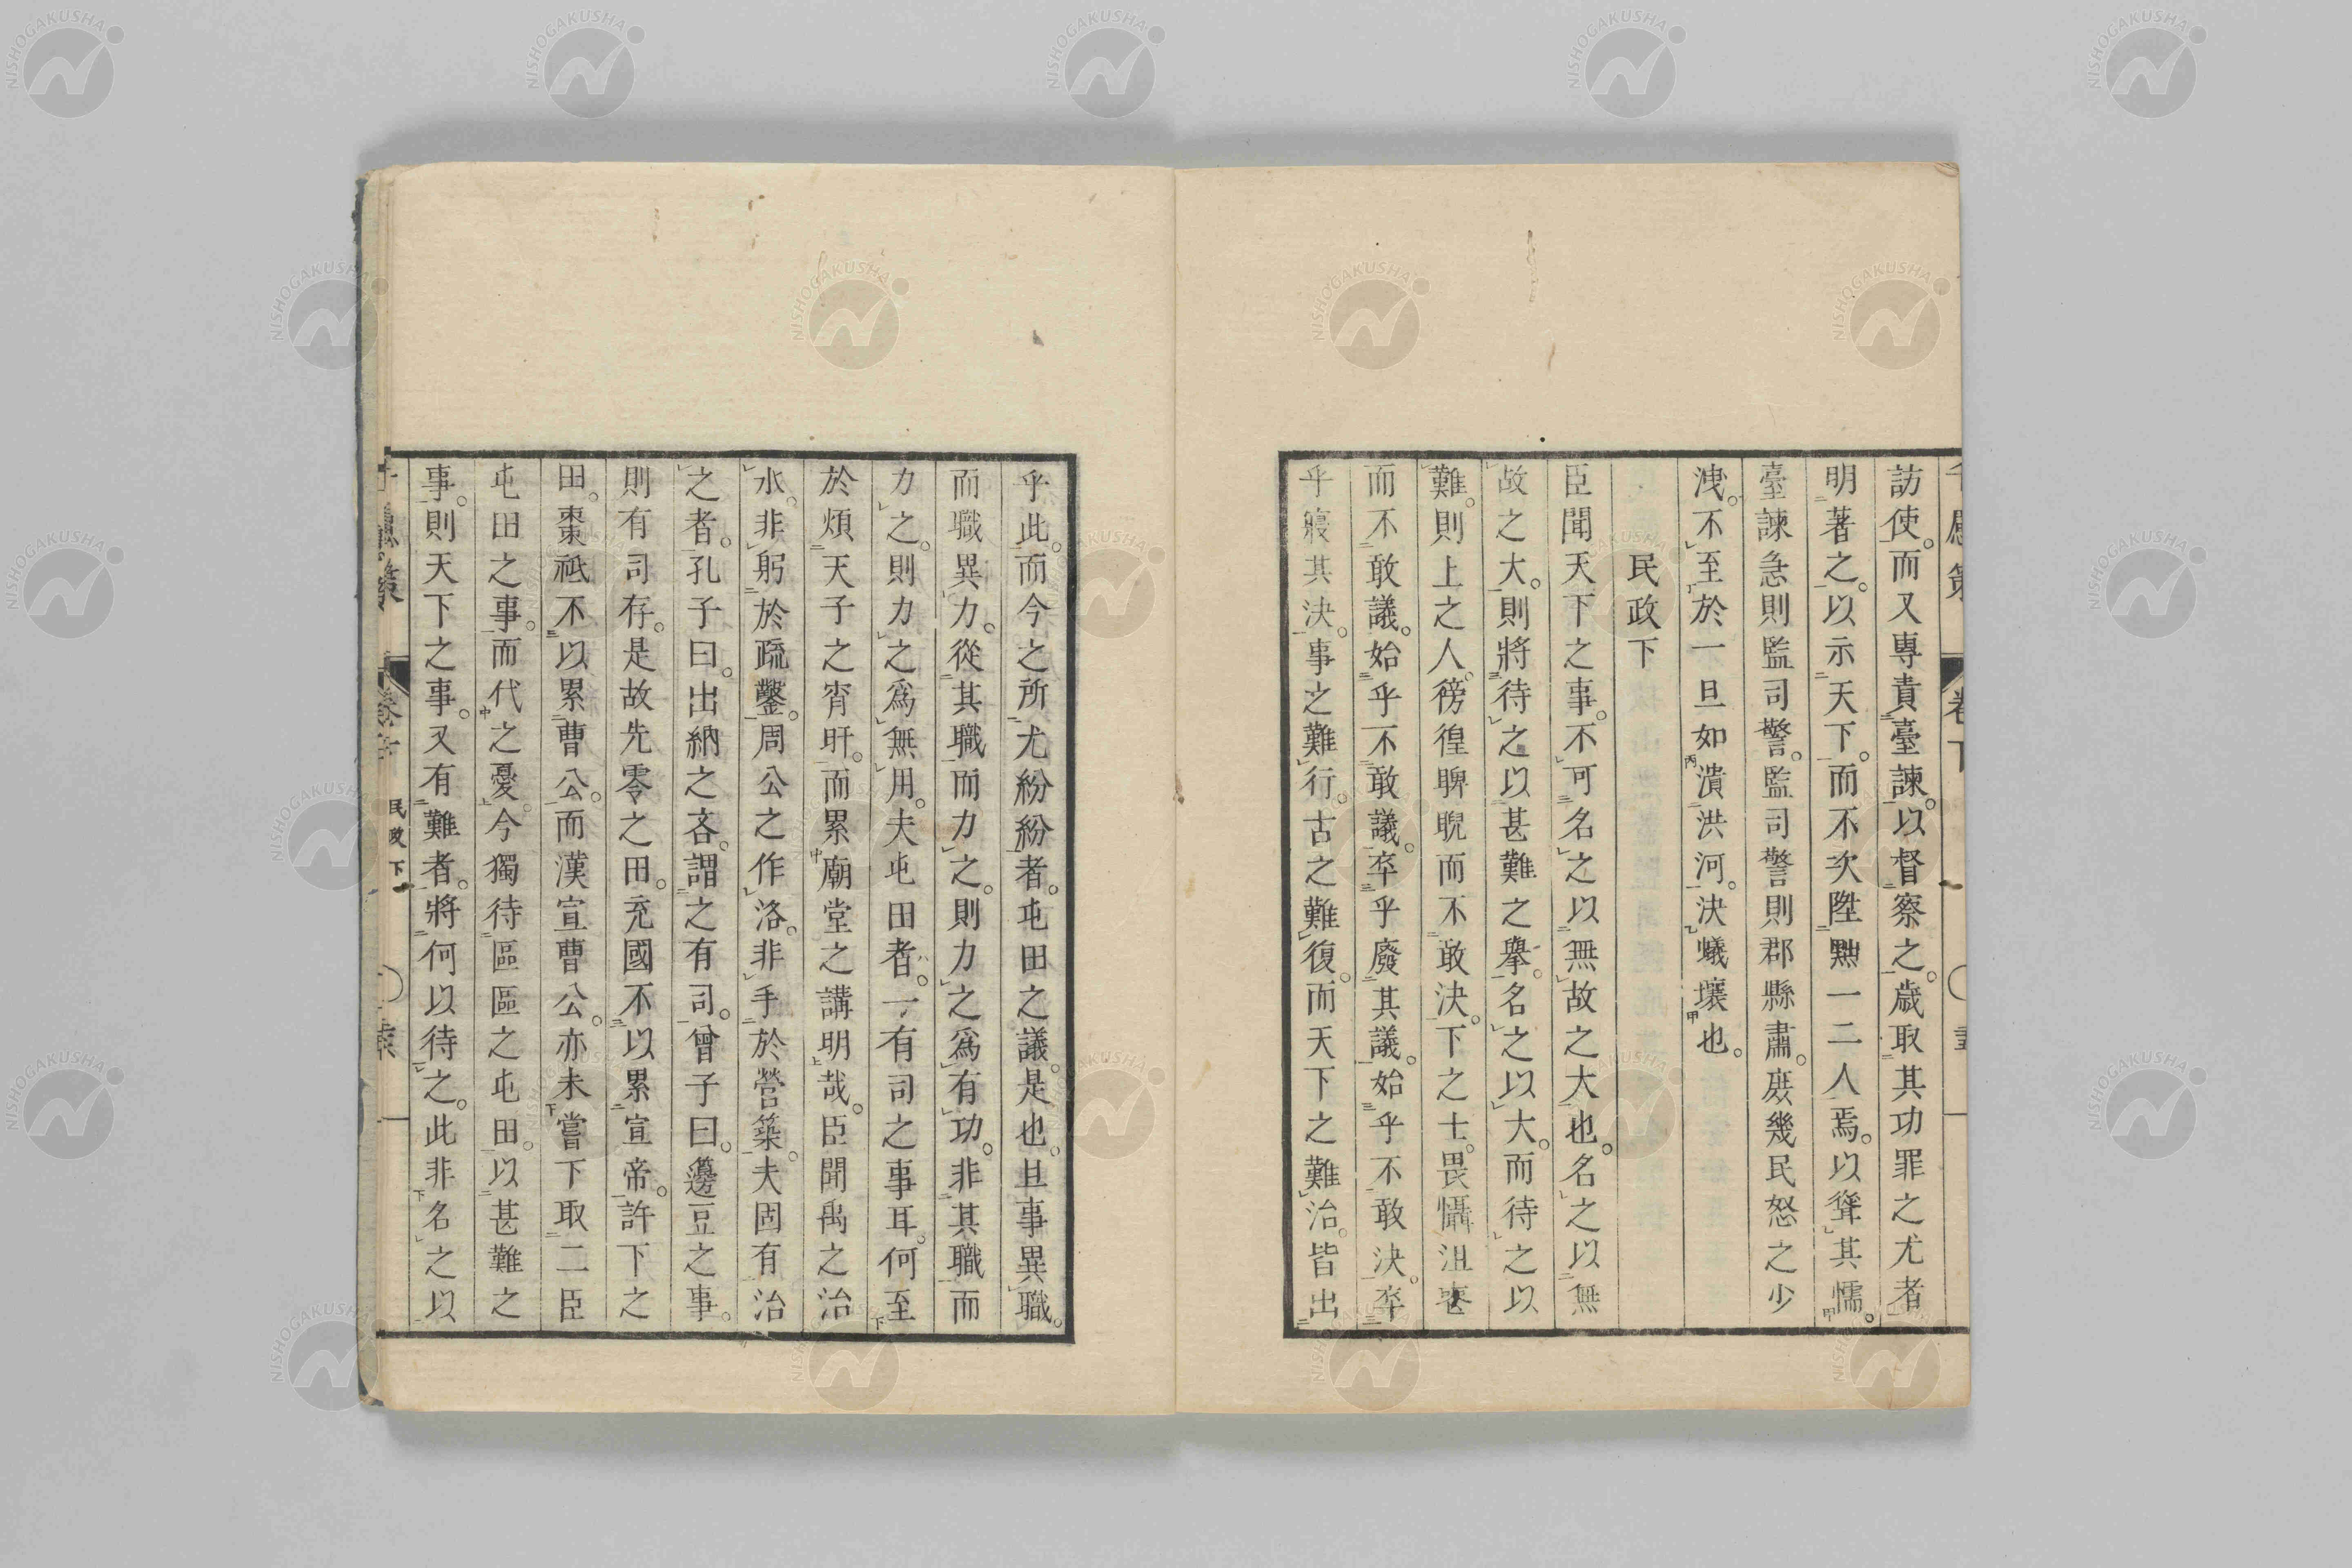 訪使。而又專責臺諫。以督察之。歳取其功罪之尤者
明著之。以示天下。而不次陞黜一二人焉。以聳其懦。
臺諫急則監司警。監司警則郡縣肅。庶幾民怒之少
洩。不至於一旦如潰洪河。決蟻壤也。
民政下
臣聞天下之事。不可名之以無故之大也。名之以無
故之大。則將待之以甚難之擧。名之以大。而待之以
難。則上之人。徬徨睥睨而不敢決。下之士。畏懾沮
而不敢議。始乎不敢議。卒乎廢其議。始乎不敢決。卒
乎寢其決。事之難行。古之難復。而天下之難治。皆出
乎此。而今之所尤紛紛者。屯田之議。是也。且事異職。
而職異力。從其職而力之。則力之爲有功。非其職而
力之。則力之爲無用。夫屯田者。一有司之事耳。何至
於煩天子之宵旰。而累廟堂之講明哉。臣聞禹之治
水。非躬於疏鑿。周公之作洛。非手於營築。夫固有治
之者。孔子曰。出納之吝。謂之有司。曾子曰。籩豆之事。
則有司存。是故先零之田。充國不以累宣帝。許下之
田。棗祗不以累曹公。而漢宣曹公。亦未嘗下取二臣
屯田之事。而代之憂。今獨待區區之屯田。以甚難之
事。則天下之事。又有難者。將何以待之。此非名之以
民政下